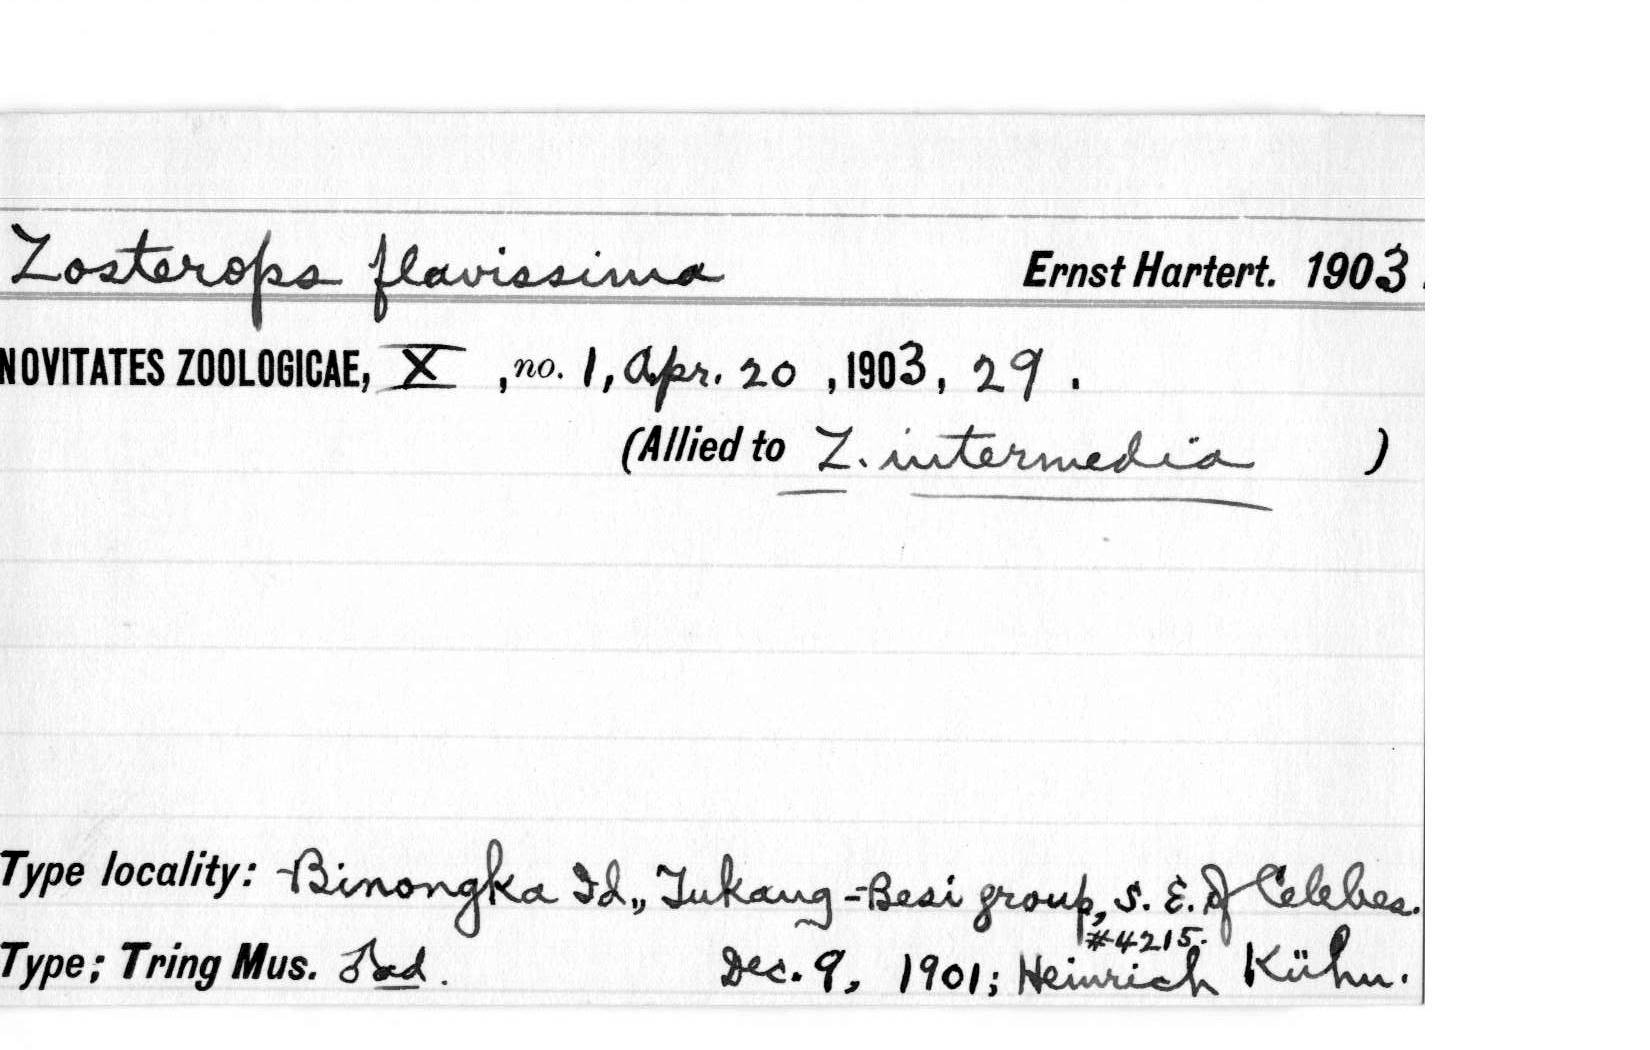 Zosterops flavissima Ernst Hartert. 1903.
NOVITATES ZOOLOGICAE, X, no. 1, Apr. 20, 1903, 29.
(Allied to Z. intermedia )
Type locality: Binongka Id., Tukang-Besi group, S. E. of Celebes.
#4215.
Type; Tring Mus. ♂ad. Dec. 9, 1901; Heinrich Kühn.